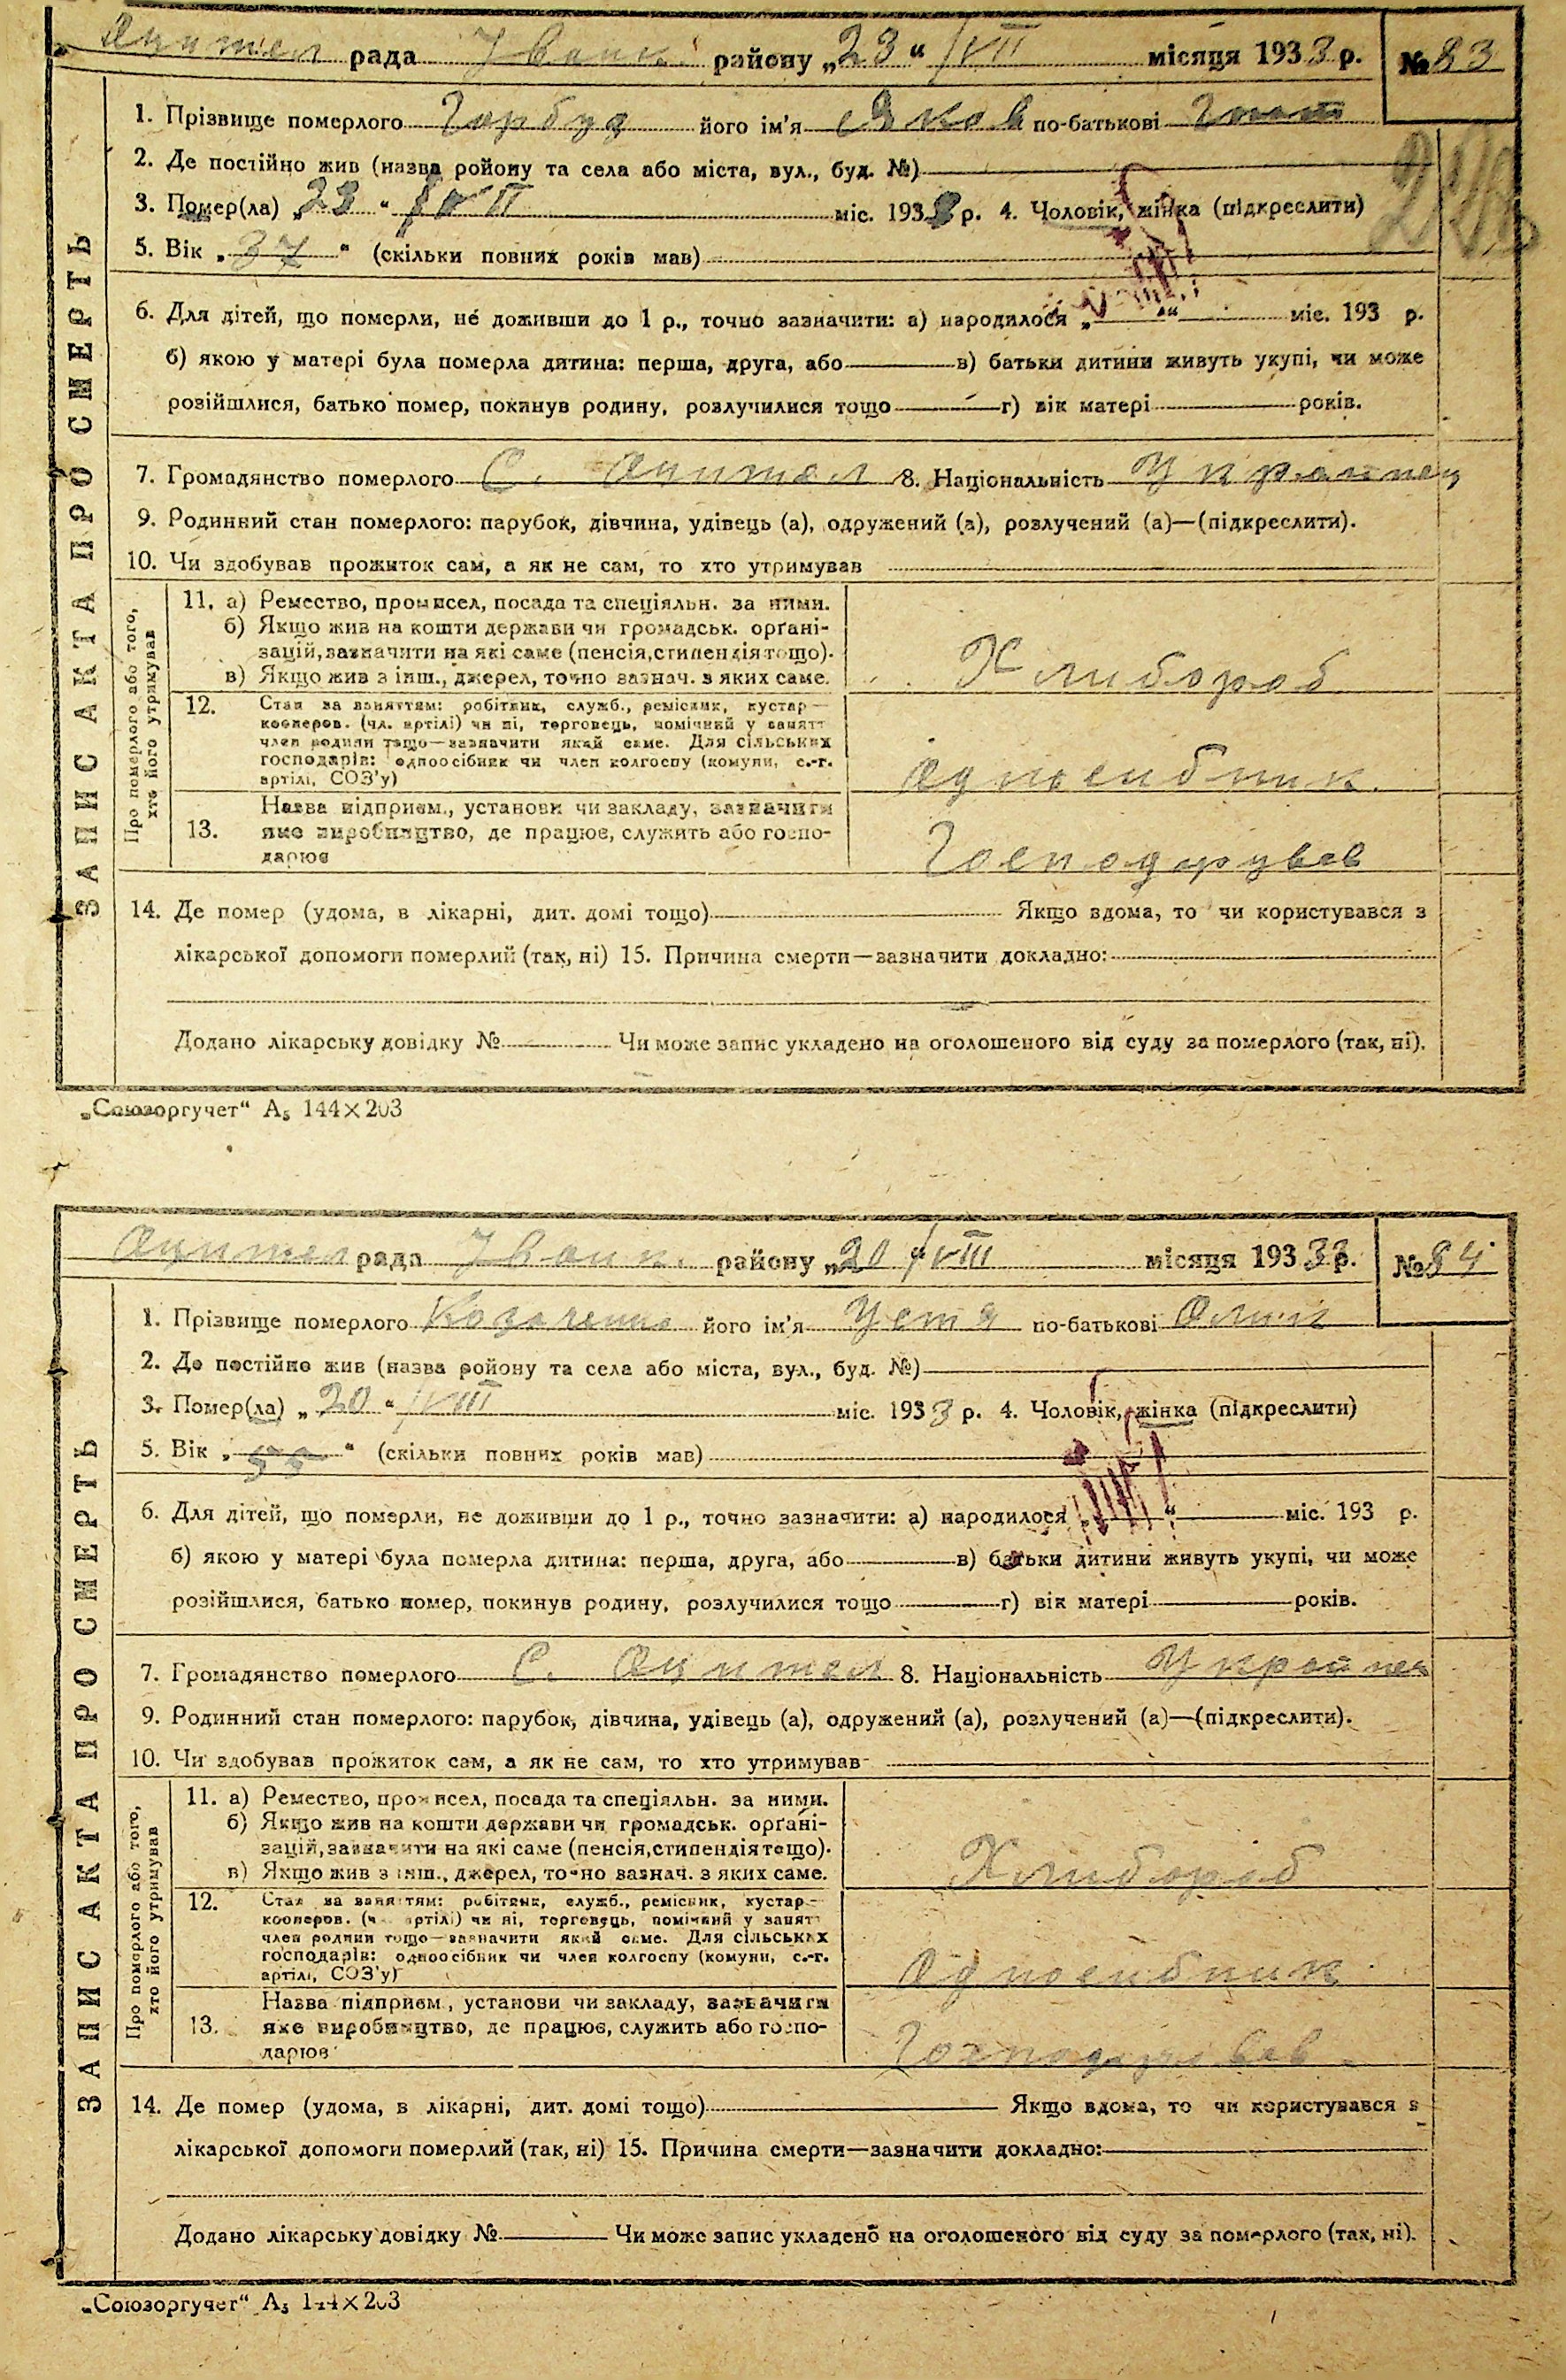 Оцител рада Іванк. району „23“ /VII місяця 1933 р. № 83
1. Прізвище померлого Горбуд його ім'я Яков по-батькові
2. Де постійно жив (назва ройону та села або міста, вул., буд. №)
3. Помер(ла) „23“ /VII міс. 1933 р. 4. Чоловік, жінка (підкреслити)
5. Вік „37“ (скільки повних років мав)
6. Для дітей, що померли, не доживши до 1 р., точно зазначити: а) народилося „ “ міс. 193 р.
б) якою у матері була померла дитина: перша, друга, або в) батьки дитини живуть укупі, чи може
розійшлися, батько помер, покинув родину, розлучилися тощо г) вік матері років.
7. Громадянство померлого С. Оцител 8. Національність Украінец
9. Родинний стан померлого: парубок, дівчина, удівець (а), одружений (а), розлучений (а)—(підкреслити).
10. Чи здобував прожиток сам, а як не сам, то хто утримував
ЗАПИС АКТА ПРО СМЕРТЬ
Про померлого або того,
хто його утримував
11. а) Ремество, промисел, посада та спеціяльн. за ними.
б) Якщо жив на кошти держави чи громадськ. орґані-
зацій, зазначити на які саме (пенсія, стипендія тощо).
в) Якщо жив з інш., джерел, точно зазнач. з яких саме.
Хлибороб
12. Стан за заняттям: робітник, служб., ремісник, кустар—
кооперов. (чл. артілі) чи ні, торговець, помічний у занятт
член родини тощо—зазначити який саме. Для сільських
господарів: одноосібник чи член колгоспу (комуни, с.-г.
артілі, СОЗ'у)
Односибник.
13. Назва підприєм., установи чи закладу, зазначити
яке виробництво, де працює, служить або госпо-
дарює
Господарував
14. Де помер (удома, в лікарні, дит. домі тощо) Якщо вдома, то чи користувався з
лікарської допомоги померлий (так, ні) 15. Причина смерти—зазначити докладно:
Додано лікарську довідку № Чи може запис укладено на оголошеного від суду за померлого (так, ні).
„Союзоргучет“ А₅ 144×203
Оцител рада Іванк. району „20“ /VIII місяця 1933 р. № 84
1. Прізвище померлого Козаченко його ім'я Устя по-батькові
2. Де постійно жив (назва ройону та села або міста, вул., буд. №)
3. Помер(ла) „20“ /VIII міс. 1933 р. 4. Чоловік, жінка (підкреслити)
5. Вік „55“ (скільки повних років мав)
6. Для дітей, що померли, не доживши до 1 р., точно зазначити: а) народилося „ “ міс. 193 р.
б) якою у матері була померла дитина: перша, друга, або в) батьки дитини живуть укупі, чи може
розійшлися, батько помер, покинув родину, розлучилися тощо г) вік матері років.
7. Громадянство померлого С. Оцител 8. Національність Украйнец
9. Родинний стан померлого: парубок, дівчина, удівець (а), одружений (а), розлучений (а)—(підкреслити).
10. Чи здобував прожиток сам, а як не сам, то хто утримував
ЗАПИС АКТА ПРО СМЕРТЬ
Про померлого або того,
хто його утримував
11. а) Ремество, промисел, посада та спеціяльн. за ними.
б) Якщо жив на кошти держави чи громадськ. орґані-
зацій, зазначити на які саме (пенсія, стипендія тощо).
в) Якщо жив з інш., джерел, точно зазнач. з яких саме.
Хлибороб
12. Стан за заняттям: робітник, служб., ремісник, кустар—
кооперов. (чл. артілі) чи ні, торговець, помічний у занятт
член родини тощо—зазначити який саме. Для сільських
господарів: одноосібник чи член колгоспу (комуни, с.-г.
артілі, СОЗ'у)
Односибник.
13. Назва підприєм., установи чи закладу, зазначити
яке виробництво, де працює, служить або госпо-
дарює
Господарував
14. Де помер (удома, в лікарні, дит. домі тощо) Якщо вдома, то чи користувався з
лікарської допомоги померлий (так, ні) 15. Причина смерти—зазначити докладно:
Додано лікарську довідку № Чи може запис укладено на оголошеного від суду за померлого (так, ні).
„Союзоргучет“ А₅ 144×203